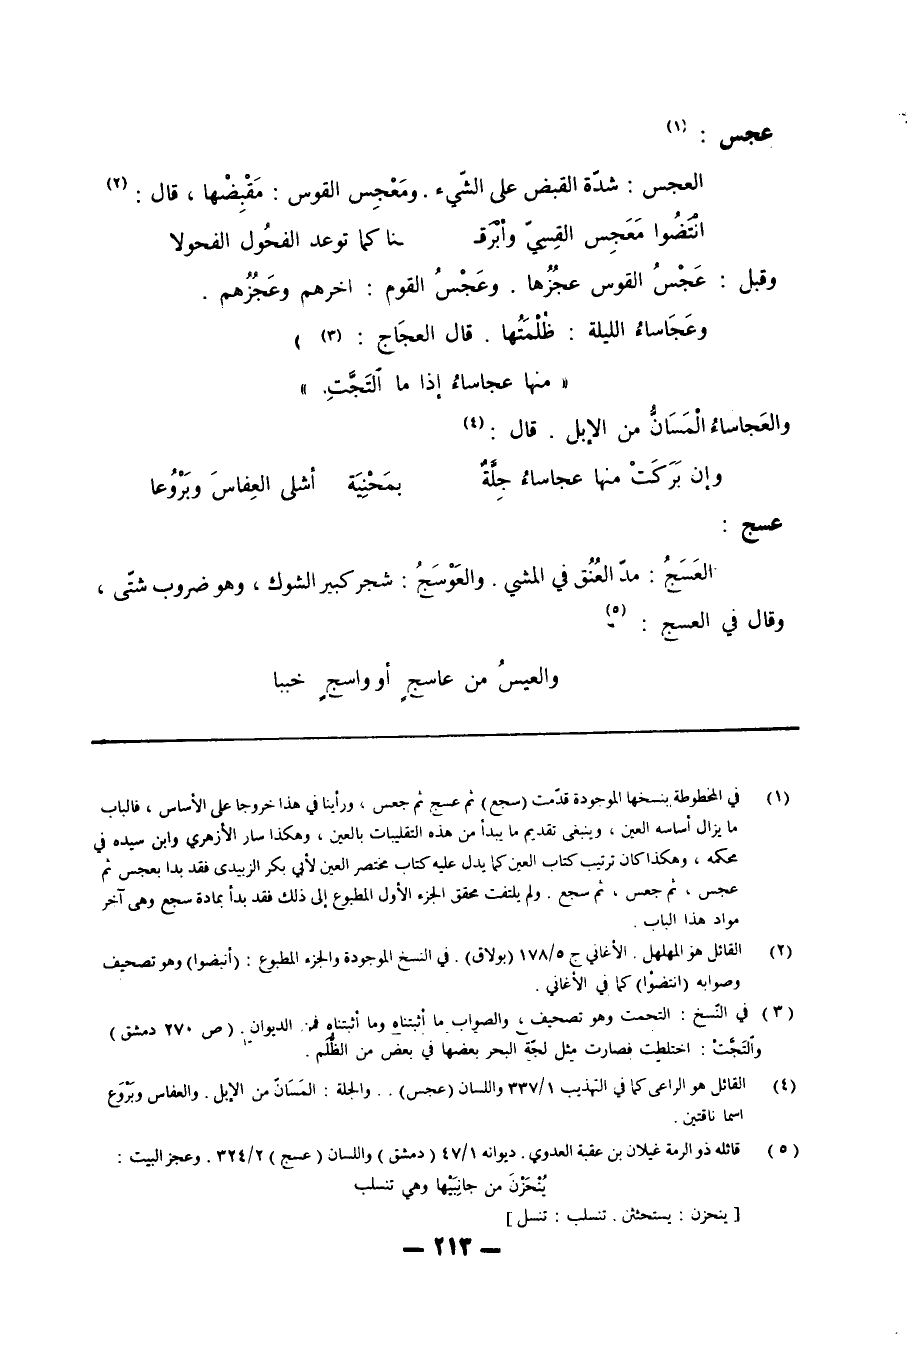 عجس : (١)
العجس : شدّة القبض على الشّيء . ومَعْجِس القوس : مَقْبِضْها ، قال : (٢)
انْتَضُوا مَعَجِس القِسيّ وأَبْرَقـ ـنا كما توعد الفحُول الفحولا
وقبل : عَجْسُ القوس عجزُها . وعَجْسُ القوم : اخرهم وعَجُزُهم .
وعَجَاساءُ الليلة : ظُلْمَتُها . قال العجَاج : (٣) )
« منها عجاساءُ إذا ما ٱلتَجَّتِ. »
والعَجاساءُ الْمَسَانُّ من الإبل . قال : (٤)
وإن بَرَكَتْ منها عجاساءُ جِلَّةٌ بمَحْنِيَة أشلى العِفاسَ وبَرْوُعا
عسج :
العَسَجُ : مدّ العُنُق في المشي . والعَوْسَجُ : شجر كبير الشوك ، وهو ضروب شتّى ،
وقال في العسج : (٥)
والعيسُ من عاسجٍ أو واسجٍ خببا
(١) في المخطوطة بنسخها الموجودة قدّمت (سجع) ثم عسج ثم جعس ، ورأينا في هذا خروجا على الأساس ، فالباب
ما يزال أساسه العين ، وينبغى تقديم ما يبدأ من هذه التقليبات بالعين ، وهكذا سار الأزهري وابن سيده في
محكمه ، وهكذا كان ترتيب كتاب العين كما يدل عليه كتاب مختصر العين لأبي بكر الزبيدى فقد بدا بعجس ثم
عجس ، ثم جعس ، ثم سجع . ولم يلتفت محقق الجزء الأول المطبوع إلى ذلك فقد بدأ بمادة سجع وهى آخر
مواد هذا الباب .
(٢) القائل هو المهلهل . الأغاني ج ١٧٨/٥ (بولاق) . في النسخ الموجودة والجزء المطبوع : (أنبضوا) وهو تصحيف
وصوابه (انتضوْا) كما في الأغاني .
(٣) في النّسخ : التحمت وهو تصحيف ، والصواب ما أثبتناه وما أثبتناه فمن الديوان . ( ص ٢٧٠ دمشق )
وٱلتَجَّتْ : اختلطت فصارت مثل لجّة البحر بعضها في بعض من الظُّلَم .
(٤) القائل هو الراعى كما في التهذيب ٣٣٧/١ واللسان (عجس) . . والجلة : المَسَانّ من الإبل . والعفاس وبَرْوَع
اسما ناقتين .
(٥) قائله ذو الرمة غيلان بن عقبة العدوي . ديوانه ٤٧/١ ( دمشق ) واللسان ( عسج ) ٣٢٤/٢ . وعجز البيت :
يُنْحَزْنَ من جانِبَيْها وهي تنسلب
[ ينحزن : يستحثثن . تنسلب : تنسل ]
— ٢١٣ —